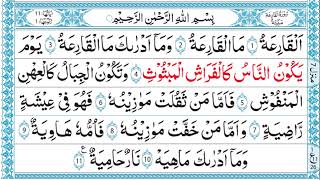 بِسْمِ اللهِ الرَّحْمٰنِ الرَّحِيْمِ
اَلْقَارِعَةُ ۝1 مَا الْقَارِعَةُ ۝2 وَمَاۤ اَدْرٰىكَ مَا الْقَارِعَةُ ۝3 يَوْمَ
يَكُوْنُ النَّاسُ كَالْفَرَاشِ الْمَبْثُوْثِ ۝4 وَتَكُوْنُ الْجِبَالُ كَالْعِهْنِ
الْمَنْفُوْشِ ۝5 فَاَمَّا مَنْ ثَقُلَتْ مَوَازِيْنُهٗ ۝6 فَهُوَ فِيْ عِيْشَةٍ
رَّاضِيَةٍ ۝7 وَاَمَّا مَنْ خَفَّتْ مَوَازِيْنُهٗ ۝8 فَاُمُّهٗ هَاوِيَةٌ ۝9
وَمَاۤ اَدْرٰىكَ مَاهِيَهْ ۝10 نَارٌ حَامِيَةٌ ۝11